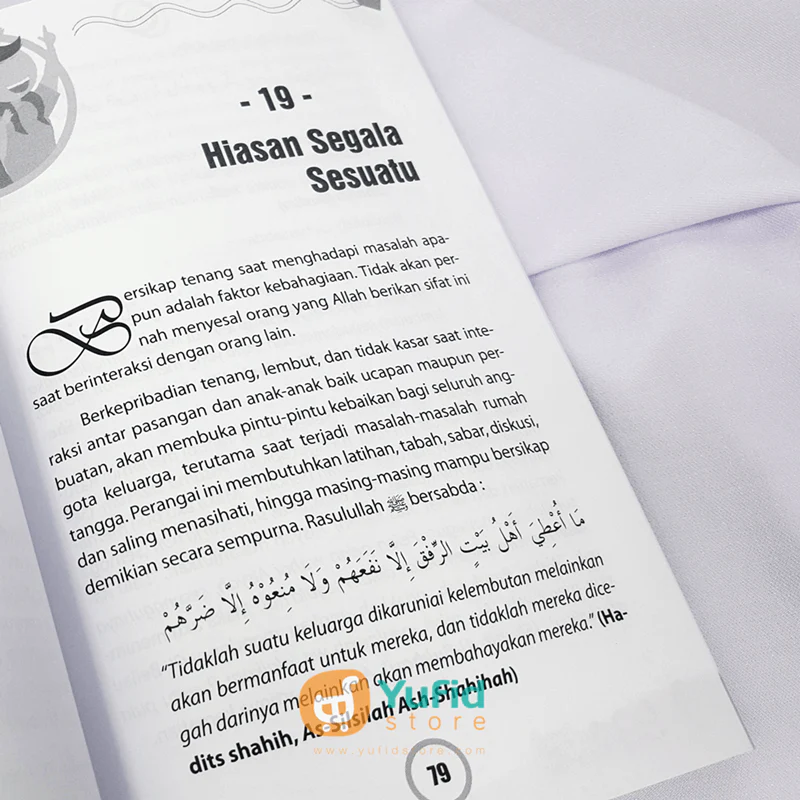 - 19 -
Hiasan Segala
Sesuatu
Bersikap tenang saat menghadapi masalah apa-
pun adalah faktor kebahagiaan. Tidak akan per-
nah menyesal orang yang Allah berikan sifat ini
saat berinteraksi dengan orang lain.
Berkepribadian tenang, lembut, dan tidak kasar saat inte-
raksi antar pasangan dan anak-anak baik ucapan maupun per-
buatan, akan membuka pintu-pintu kebaikan bagi seluruh ang-
gota keluarga, terutama saat terjadi masalah-masalah rumah
tangga. Perangai ini membutuhkan latihan, tabah, sabar, diskusi,
dan saling menasihati, hingga masing-masing mampu bersikap
demikian secara sempurna. Rasulullah ﷺ bersabda :
مَا أُعْطِيَ أَهْلُ بَيْتٍ الرِّفْقَ إِلَّا نَفَعَهُمْ وَلَا مُنِعُوْهُ إِلَّا ضَرَّهُمْ
“Tidaklah suatu keluarga dikaruniai kelembutan melainkan
akan bermanfaat untuk mereka, dan tidaklah mereka dice-
gah darinya melainkan akan membahayakan mereka.” (Ha-
dits shahih, As-Silsilah Ash-Shahihah)
Yufid
store
www.yufidstore.com
79